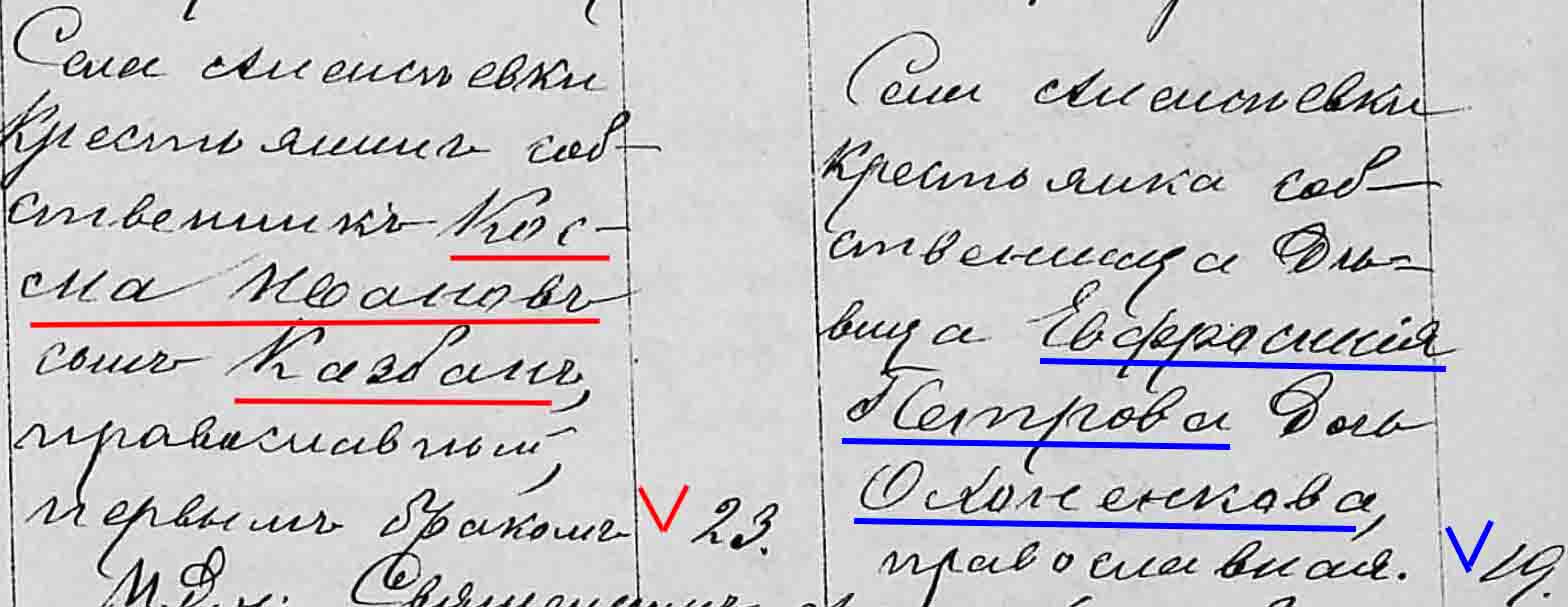 Села Алексѣевки
Крестьянинъ соб-
ственникъ Кос-
ма Ивановъ
сынъ Казбанъ,
православный,
первымъ бракомъ
23.
Села Алексѣевки
Крестьянка соб-
ственница Дѣ-
вица Евфросинія
Петрова Дочь
православная.
19.